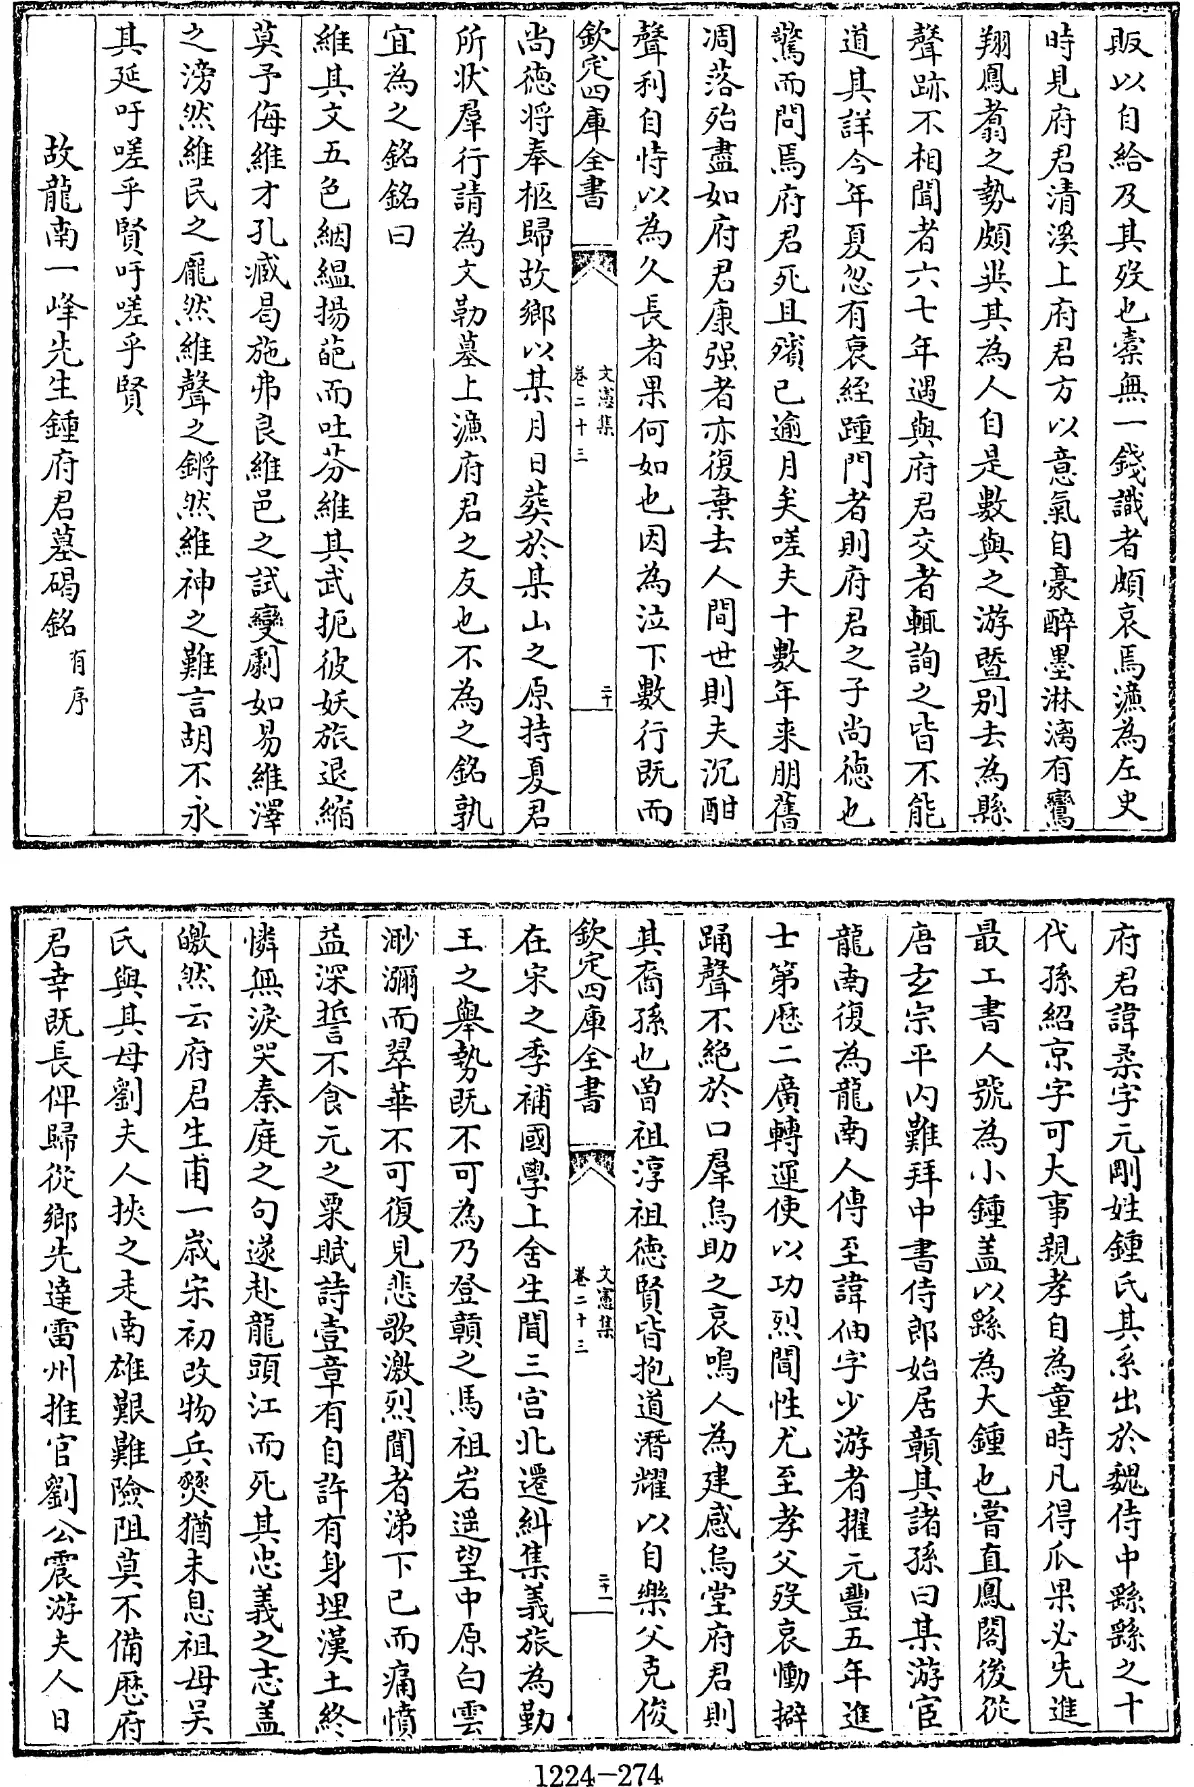 販以自給及其歿也橐無一錢識者頗哀焉濂為左史
時見府君清溪上府君方以意氣自豪醉墨淋漓有鸞
翔鳳翥之勢頗異其為人自是數與之游暨别去為縣
聲跡不相聞者六七年遇與府君交者輒詢之皆不能
道其詳今年夏忽有衰絰踵門者則府君之子尚徳也
驚而問焉府君死且殯已逾月矣嗟夫十數年来朋舊
凋落殆盡如府君康强者亦復棄去人間世則夫沉酣
聲利自恃以為久長者果何如也因為泣下數行既而
欽定四庫全書
文憲集
卷二十三
二十
尚徳将奉柩歸故鄉以某月日葬於某山之原持夏君
所状羣行請為文勒墓上濂府君之友也不為之銘孰
宜為之銘銘曰
維其文五色絪縕揚葩而吐芬維其武扼彼妖旅退縮
莫予侮維才孔臧曷施弗良維邑之試變劇如易維澤
之滂然維民之龐然維聲之鏘然維神之難言胡不永
其延吁嗟乎賢吁嗟乎賢
故龍南一峰先生鍾府君墓碣銘有序
府君諱柔字元剛姓鍾氏其系出於魏侍中繇繇之十
代孫紹京字可大事親孝自為童時凡得瓜果必先進
最工書人號為小鍾盖以繇為大鍾也嘗直鳳閣後從
唐玄宗平内難拜中書侍郎始居贛其諸孫曰某游宦
龍南復為龍南人傳至諱伷字少游者擢元豐五年進
士第歴二廣轉運使以功烈聞性尤至孝父歿哀慟擗
踊聲不絶於口羣烏助之哀鳴人為建感烏堂府君則
其裔孫也曾祖淳祖徳賢皆抱道潛耀以自樂父克俊
欽定四庫全書
文憲集
卷二十三
二十一
在宋之季補國學上舍生聞三宫北遷糾集義旅為勤
王之舉勢既不可為乃登贛之馬祖岩遥望中原白雲
渺瀰而翠華不可復見悲歌激烈聞者涕下已而痛憤
益深誓不食元之粟賦詩壹章有自許有身埋漢土終
憐無淚哭秦庭之句遂赴龍頭江而死其忠義之志盖
皦然云府君生甫一嵗宋初改物兵燹猶未息祖母吴
氏與其母劉夫人挾之走南雄艱難險阻莫不備歴府
君幸既長俾歸從鄉先達雷州推官劉公震游夫人日
1224—274